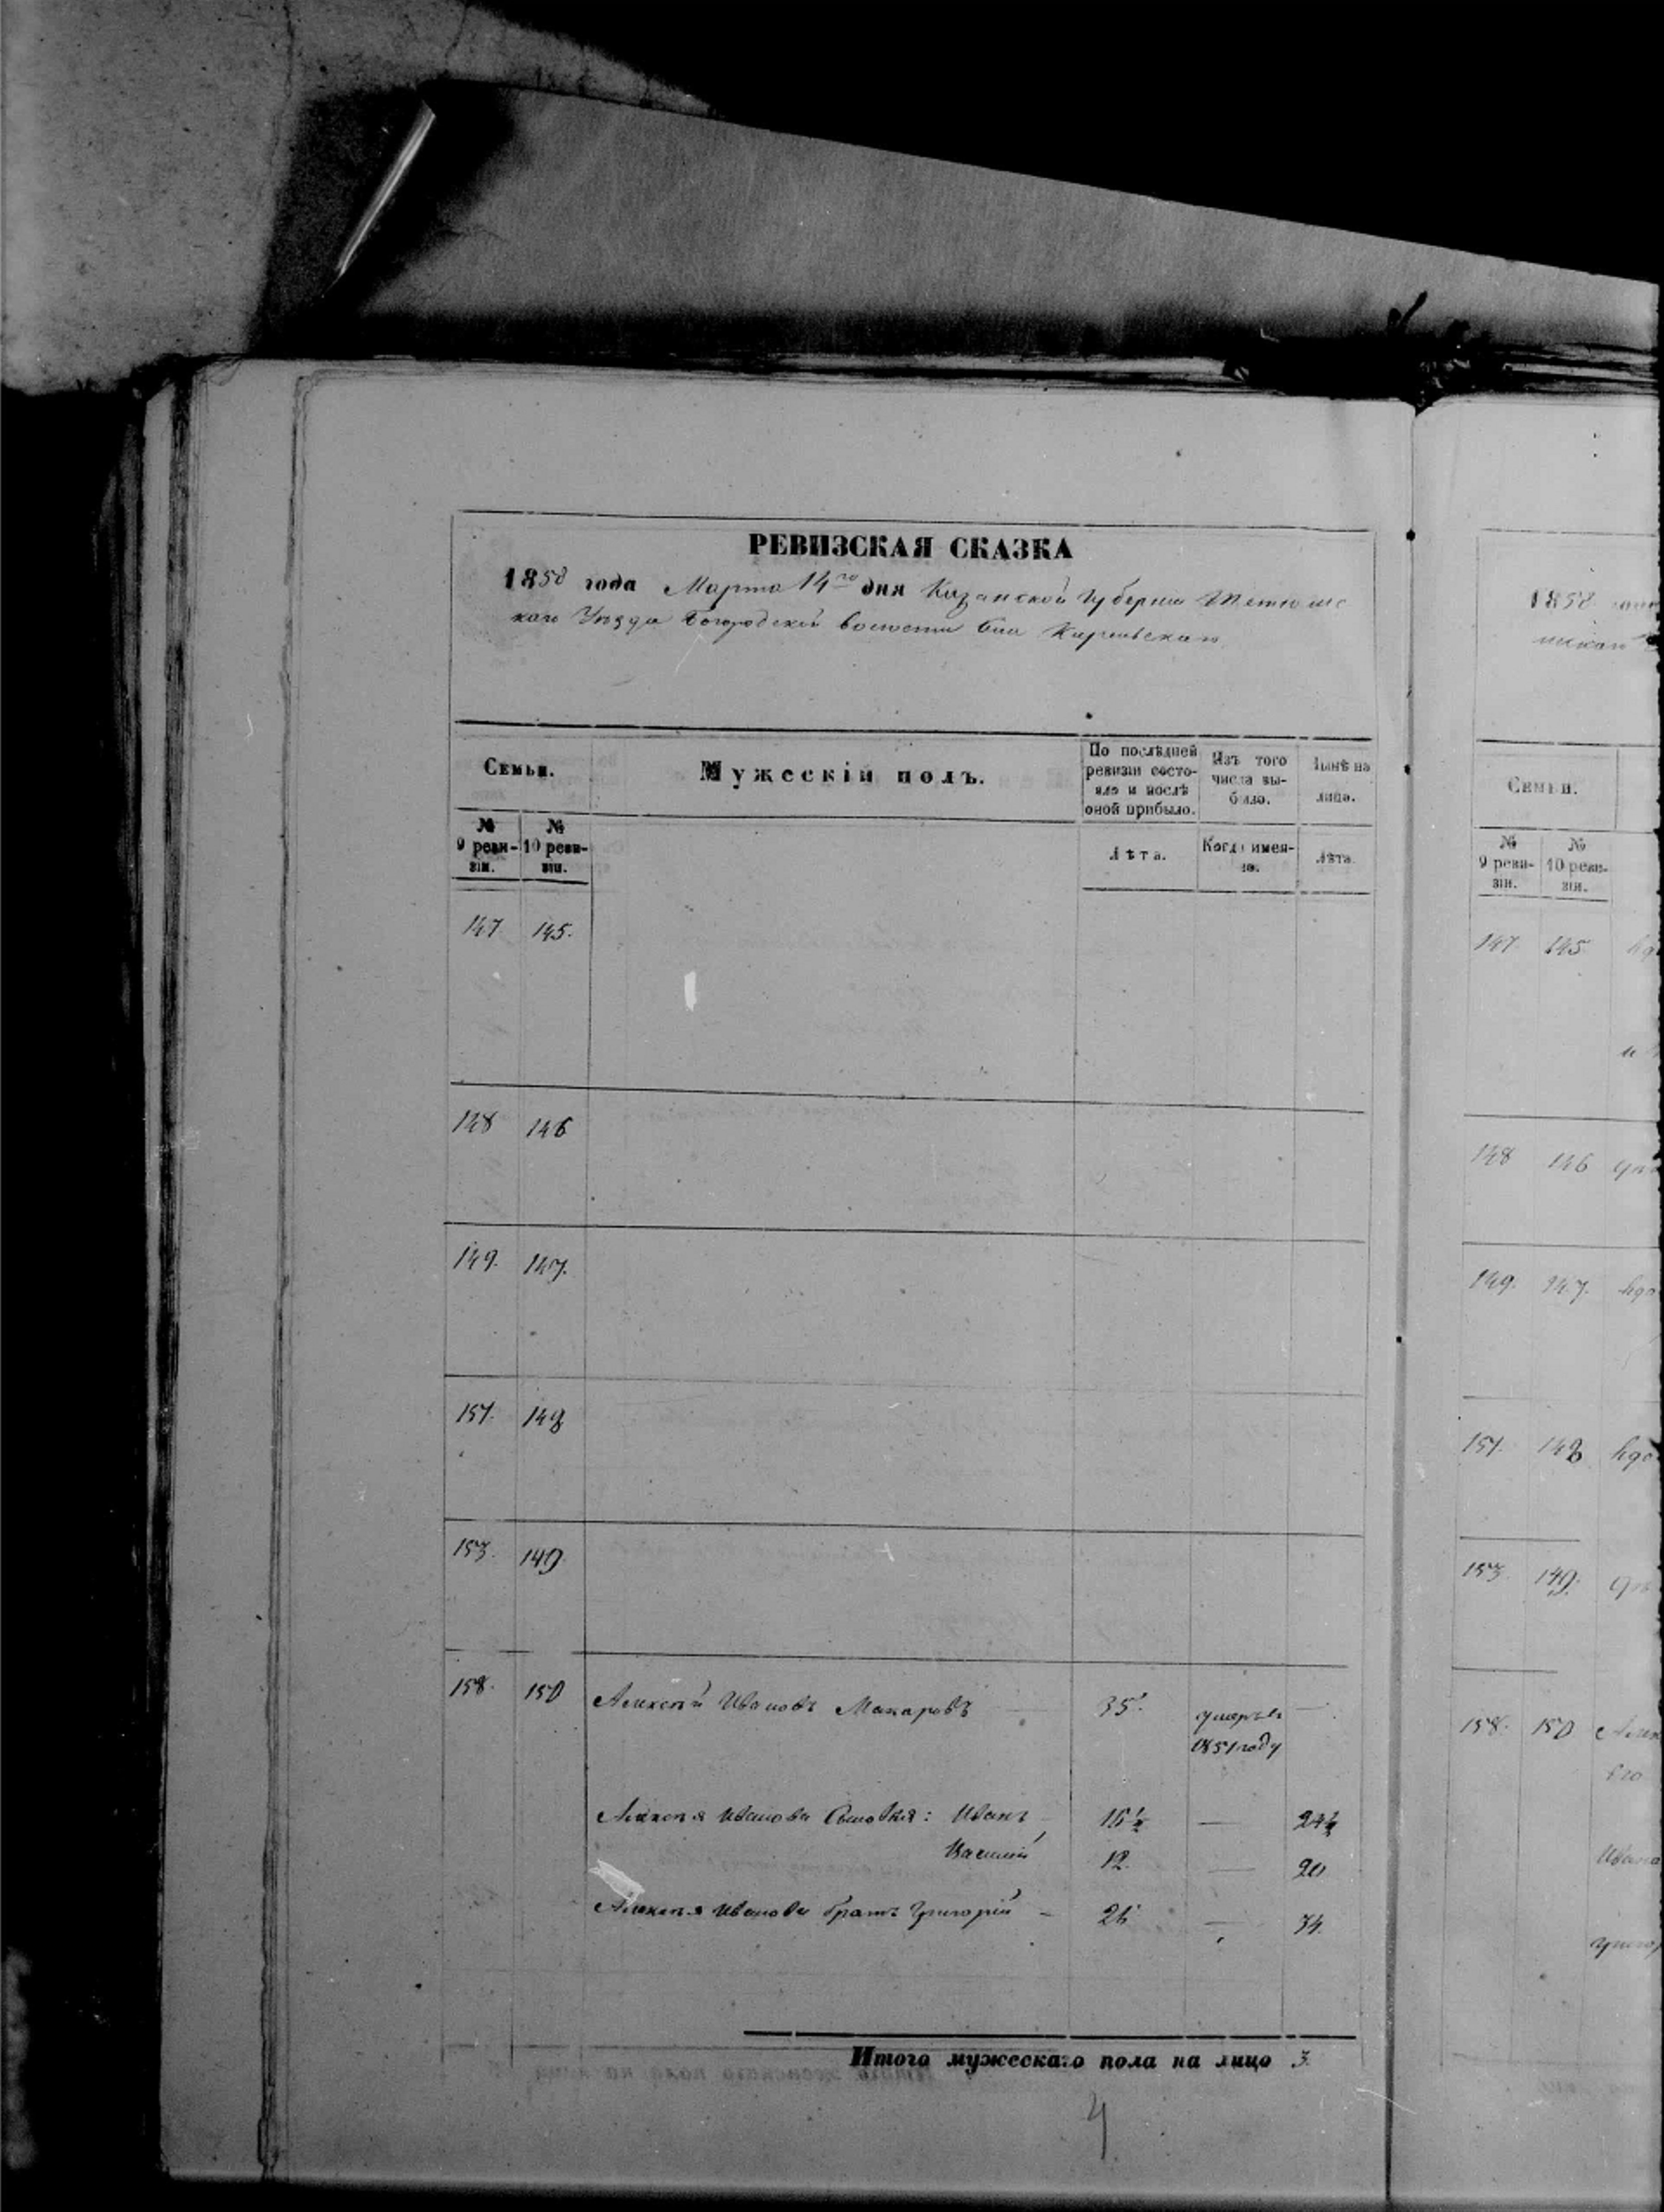 РЕВИЗСКАЯ СКАЗКА
1858 года Марта 14го дня Казанской Губерніи Тетюшс
каго Уѣзда Богородской волости
Семьи.
Мужескій полъ.
По послѣдней ревизіи состояло и послѣ оной прибыло.
Изъ того числа выбыло.
Нынѣ на лицо.
№ 9 ревизіи.
№ 10 ревизіи.
Лѣта.
Когда именно.
Лѣта.
147. 145.
148 146
149. 147.
151. 148
153. 149.
158. 150 Алексѣй Ивановъ Макаровъ 35. умеръ въ —
1851 году
Алексѣя Иванова Сыновья: Иванъ 16½ — 24½
Василій 12. — 20
Алексѣя Иванова братъ Григорій — 26 — 34.
Итого мужескаго пола на лицо 3.
4
1858
Семьи.
№ 9 ревизіи.
№ 10 ревизіи.
147 145
148 146
149. 147.
151. 148
153 149.
158. 150
Его